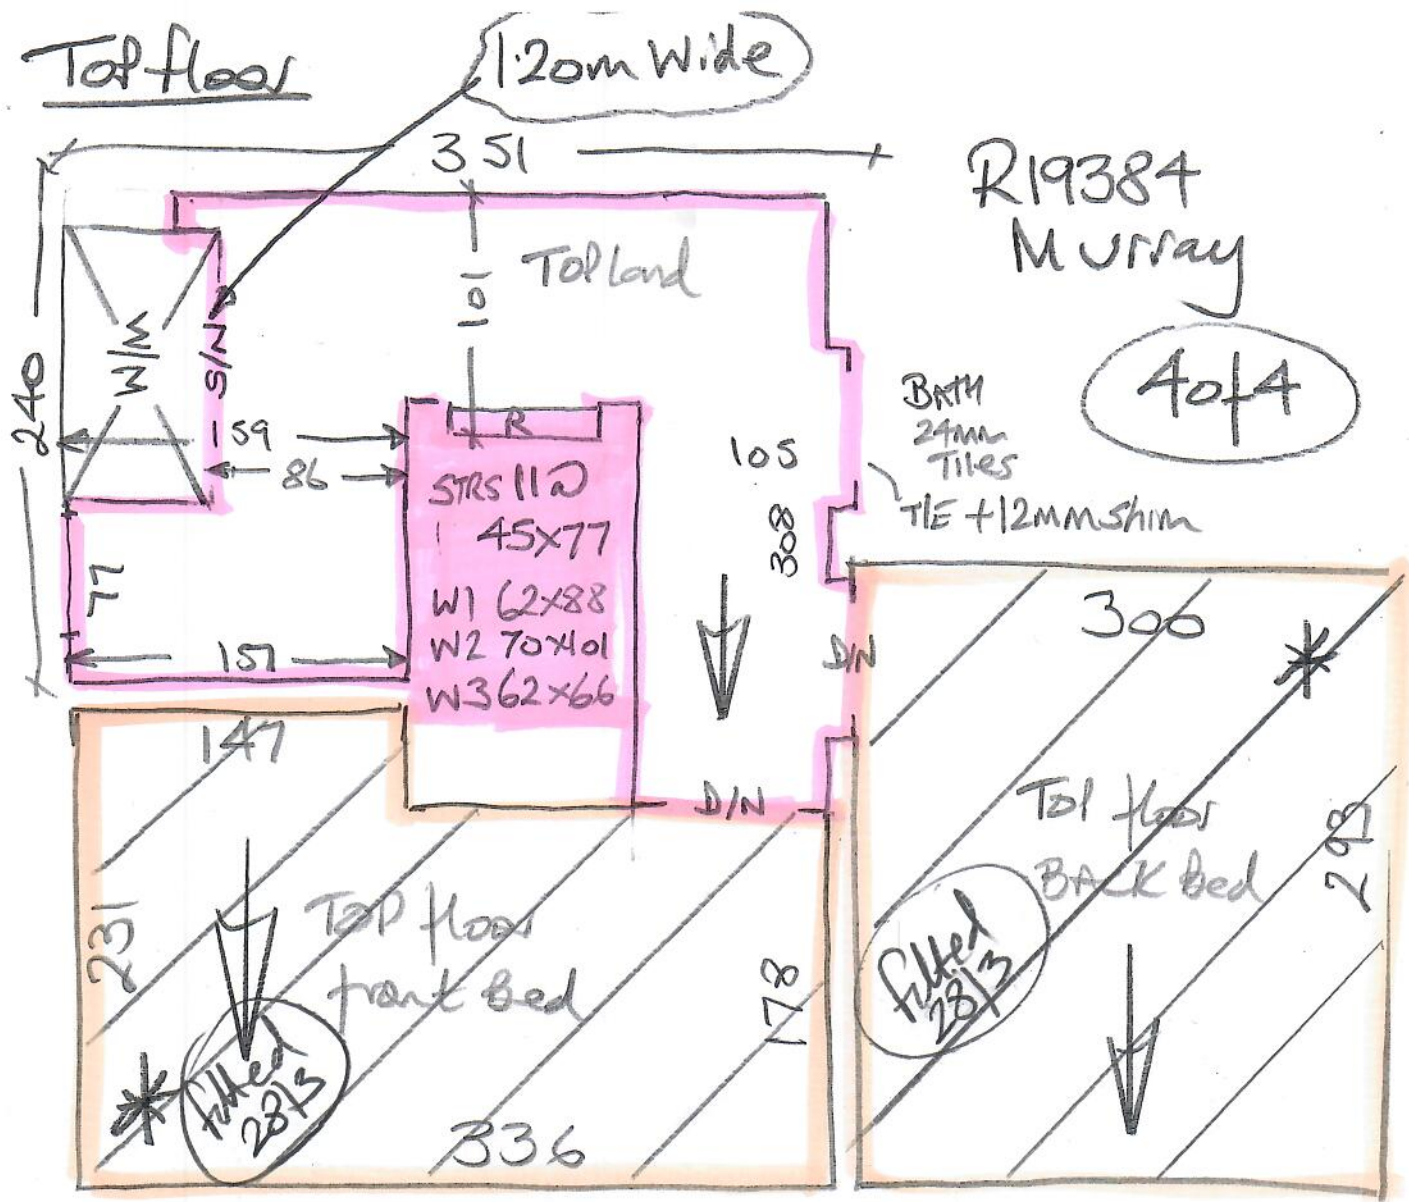 Top floor
1.20m Wide
351
R19384
Murray
4 of 4
240
W/M
S/N
101
Top Land
59
86
R
STRS 11
1 45x77
W1 62x88
W2 70x101
W3 62x66
105
308
BATH
24mm
Tiles
T/E +12mm shim
77
157
D/N
D/N
147
231
Top floor
front Bed
fitted
28/3
178
336
300
Top floor
BACK Bed
293
fitted
28/3